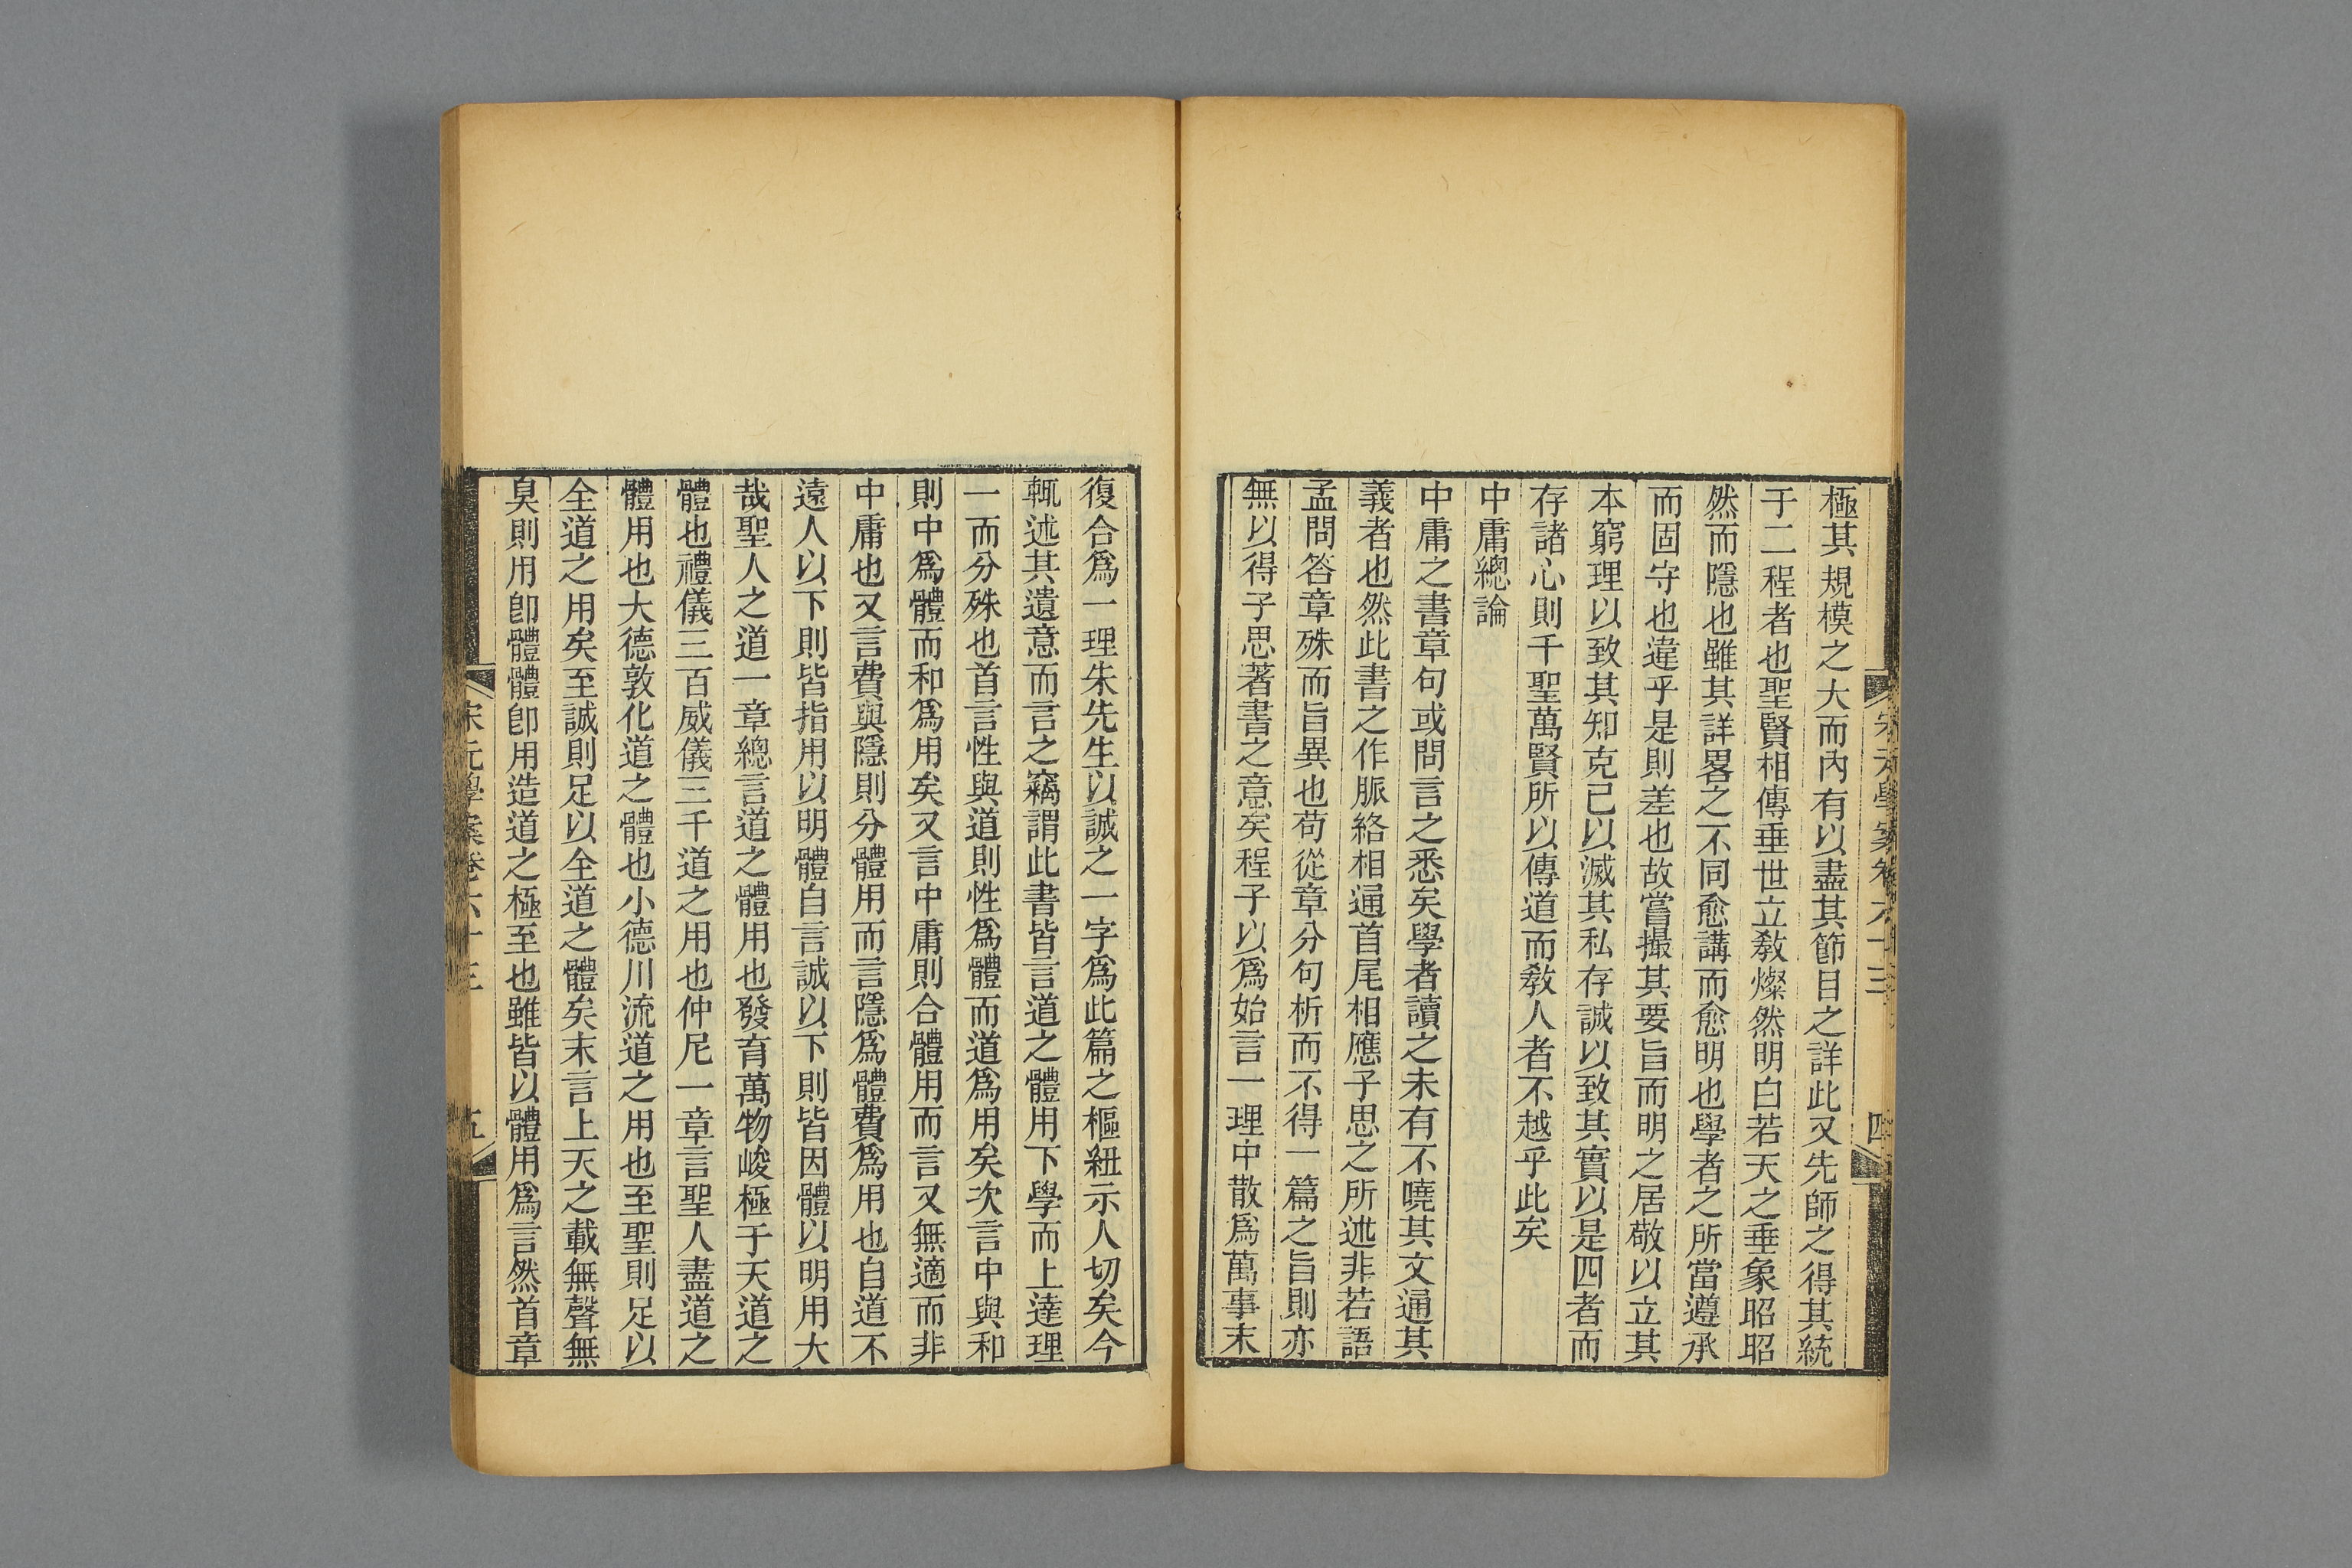 極其規模之大而內有以盡其節目之詳此又先師之得其統
于二程者也聖賢相傳垂世立敎燦然明白若天之垂象昭昭
然而隱也雖其詳畧之不同愈講而愈明也學者之所當遵承
而固守也違乎是則差也故嘗撮其要旨而明之居敬以立其
本窮理以致其知克己以滅其私存誠以致其實以是四者而
存諸心則千聖萬賢所以傳道而敎人者不越乎此矣
中庸總論
中庸之書章句或問言之悉矣學者讀之未有不曉其文通其
義者也然此書之作脈絡相通首尾相應子思之所述非若語
孟問答章殊而旨異也苟從章分句析而不得一篇之旨則亦
無以得子思著書之意矣程子以爲始言一理中散爲萬事末
復合爲一理朱先生以誠之一字爲此篇之樞紐示人切矣今
輒述其遺意而言之竊謂此書皆言道之體用下學而上達理
一而分殊也首言性與道則性爲體而道爲用矣次言中與和
則中爲體而和爲用矣又言中庸則合體用而言又無適而非
中庸也又言費與隱則分體用而言隱爲體費爲用也自道不
遠人以下則皆指用以明體自言誠以下則皆因體以明用大
哉聖人之道一章總言道之體用也發育萬物峻極于天道之
體也禮儀三百威儀三千道之用也仲尼一章言聖人盡道之
體用也大德敦化道之體也小德川流道之用也至聖則足以
全道之用矣至誠則足以全道之體矣末言上天之載無聲無
臭則用卽體體卽用造道之極至也雖皆以體用爲言然首章
宋元學案卷六十三
五